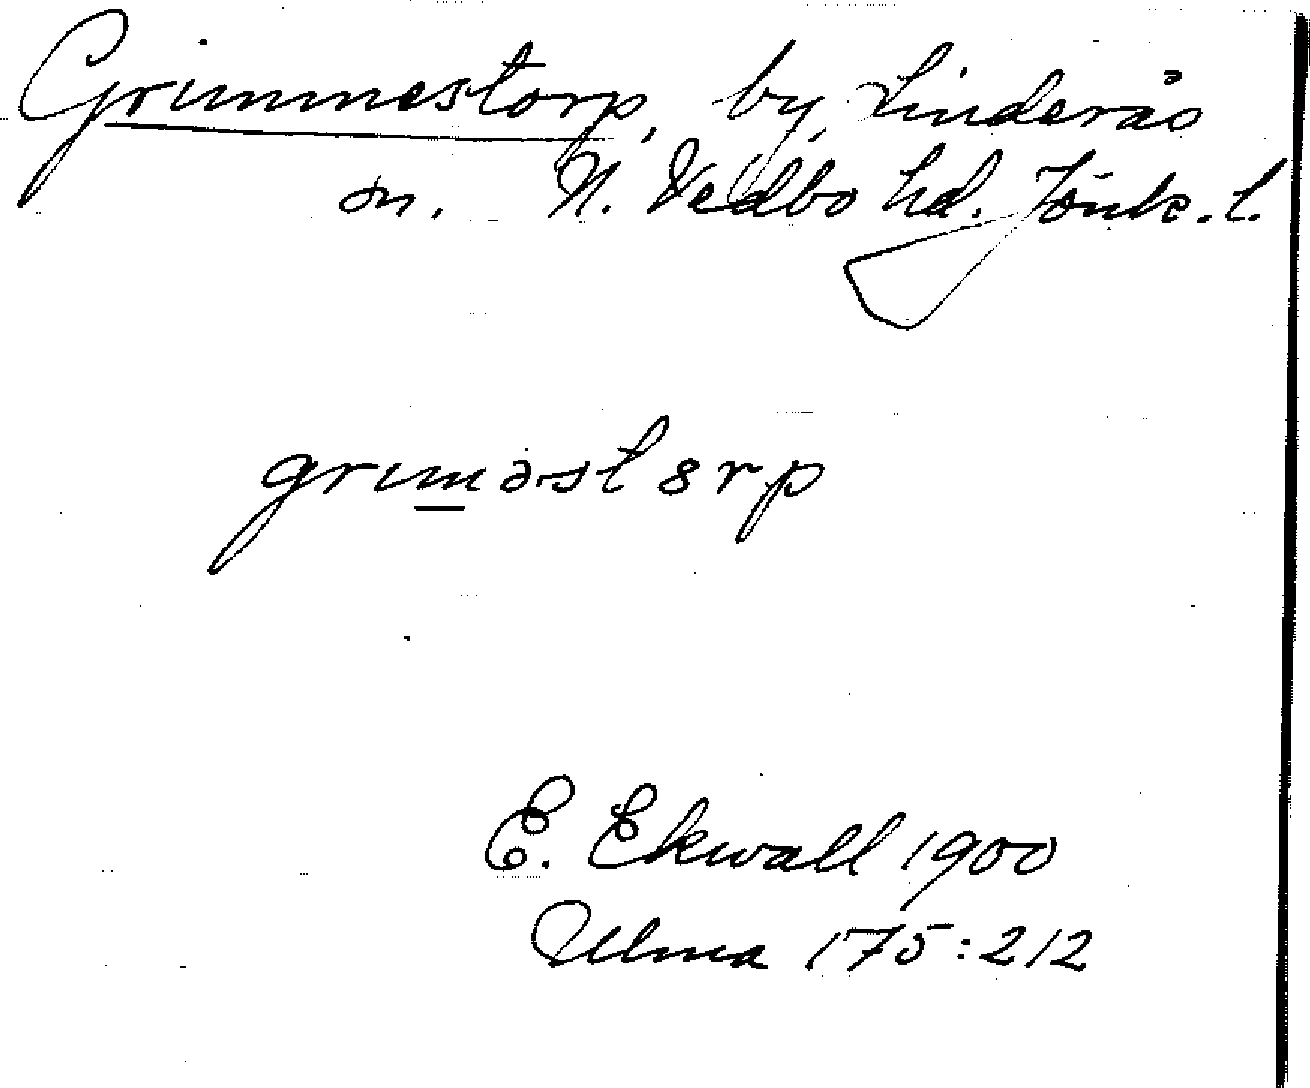 Grimmestorp, by, Linderås
sn. N. Vedbo hd. Jönk. l.
griməstərp
E. Ekwall 1900
Ulma 175:212